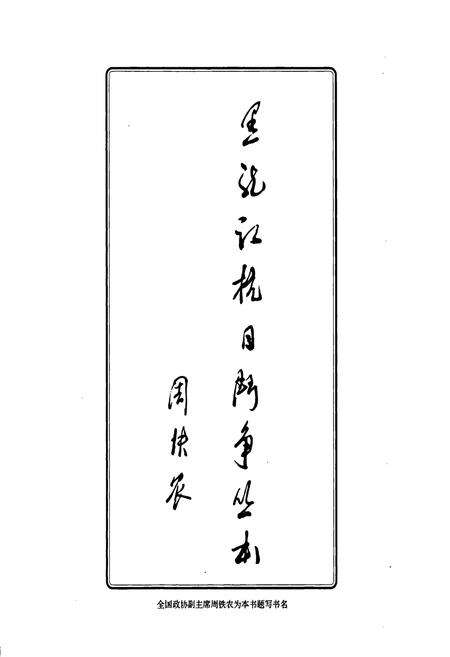 黑龙江抗日鬥争丛书
周铁农
全国政协副主席周铁农为本书题写书名